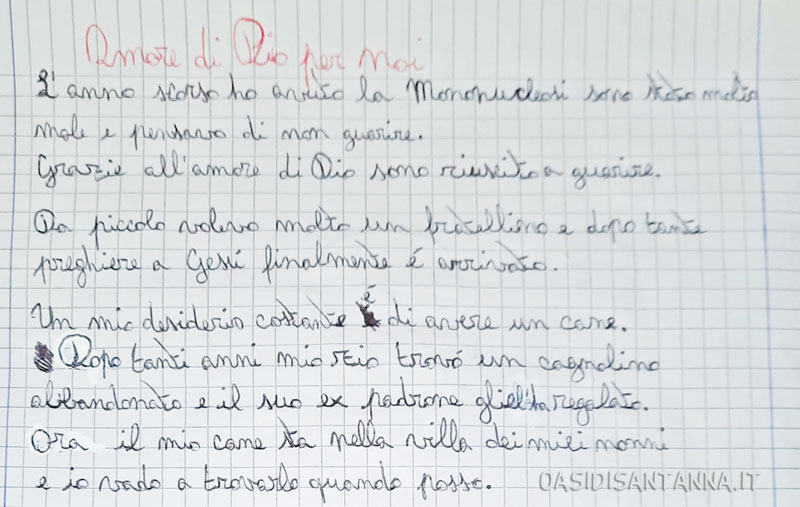 Amore di Dio per me
L'anno scorso ho avuto la Mononucleosi sono stato molto
male e pensavo di non guarire.
Grazie all'amore di Dio sono riuscito a guarire.
Da piccolo volevo molto un fratellino e dopo tante
preghiere a Gesù finalmente é arrivato.
Un mio desiderio costante é di avere un cane.
Dopo tanti anni mio zio trovó un cagnolino
abbandonato e il suo ex padrone gliel'ha regalato.
Ora il mio cane sta nella villa dei miei nonni
e io vado a trovarlo quando posso.
OASIDISANTANNA.IT